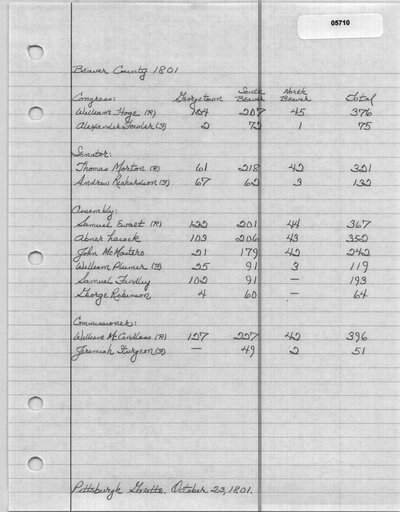 05710
Beaver County 1801
South North
Congress: Georgetown Beaver Beaver Total
William Hoge (R) 124 207 45 376
Alexander Fowler (F) 2 72 1 75
Senator:
Thomas Morton (R) 61 218 42 321
Andrew Richardson (F) 67 62 3 132
Assembly:
Samuel Ewalt (R) 122 201 44 367
Abner Lacock 103 206 43 352
John McMasters 21 179 42 242
William Plumer (F) 25 91 3 119
Samuel Findley 102 91 — 193
George Robinson 4 60 — 64
Commissioner:
William McCandless (R) 127 227 42 396
Jeremiah Sturgeon (F) — 49 2 51
Pittsburgh Gazette, October 23, 1801.